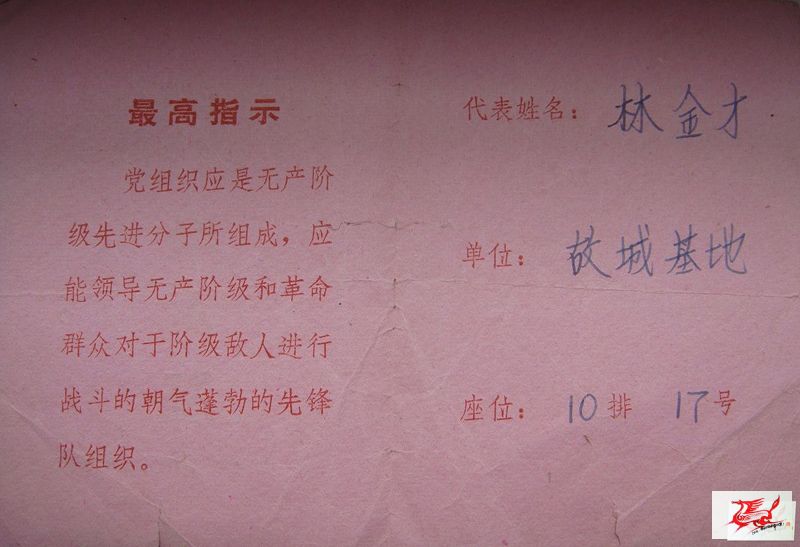 最高指示
党组织应是无产阶
级先进分子所组成，应
能领导无产阶级和革命
群众对于阶级敌人进行
战斗的朝气蓬勃的先锋
队组织。
代表姓名：林金才
单位：故城基地
座位：10排 17号